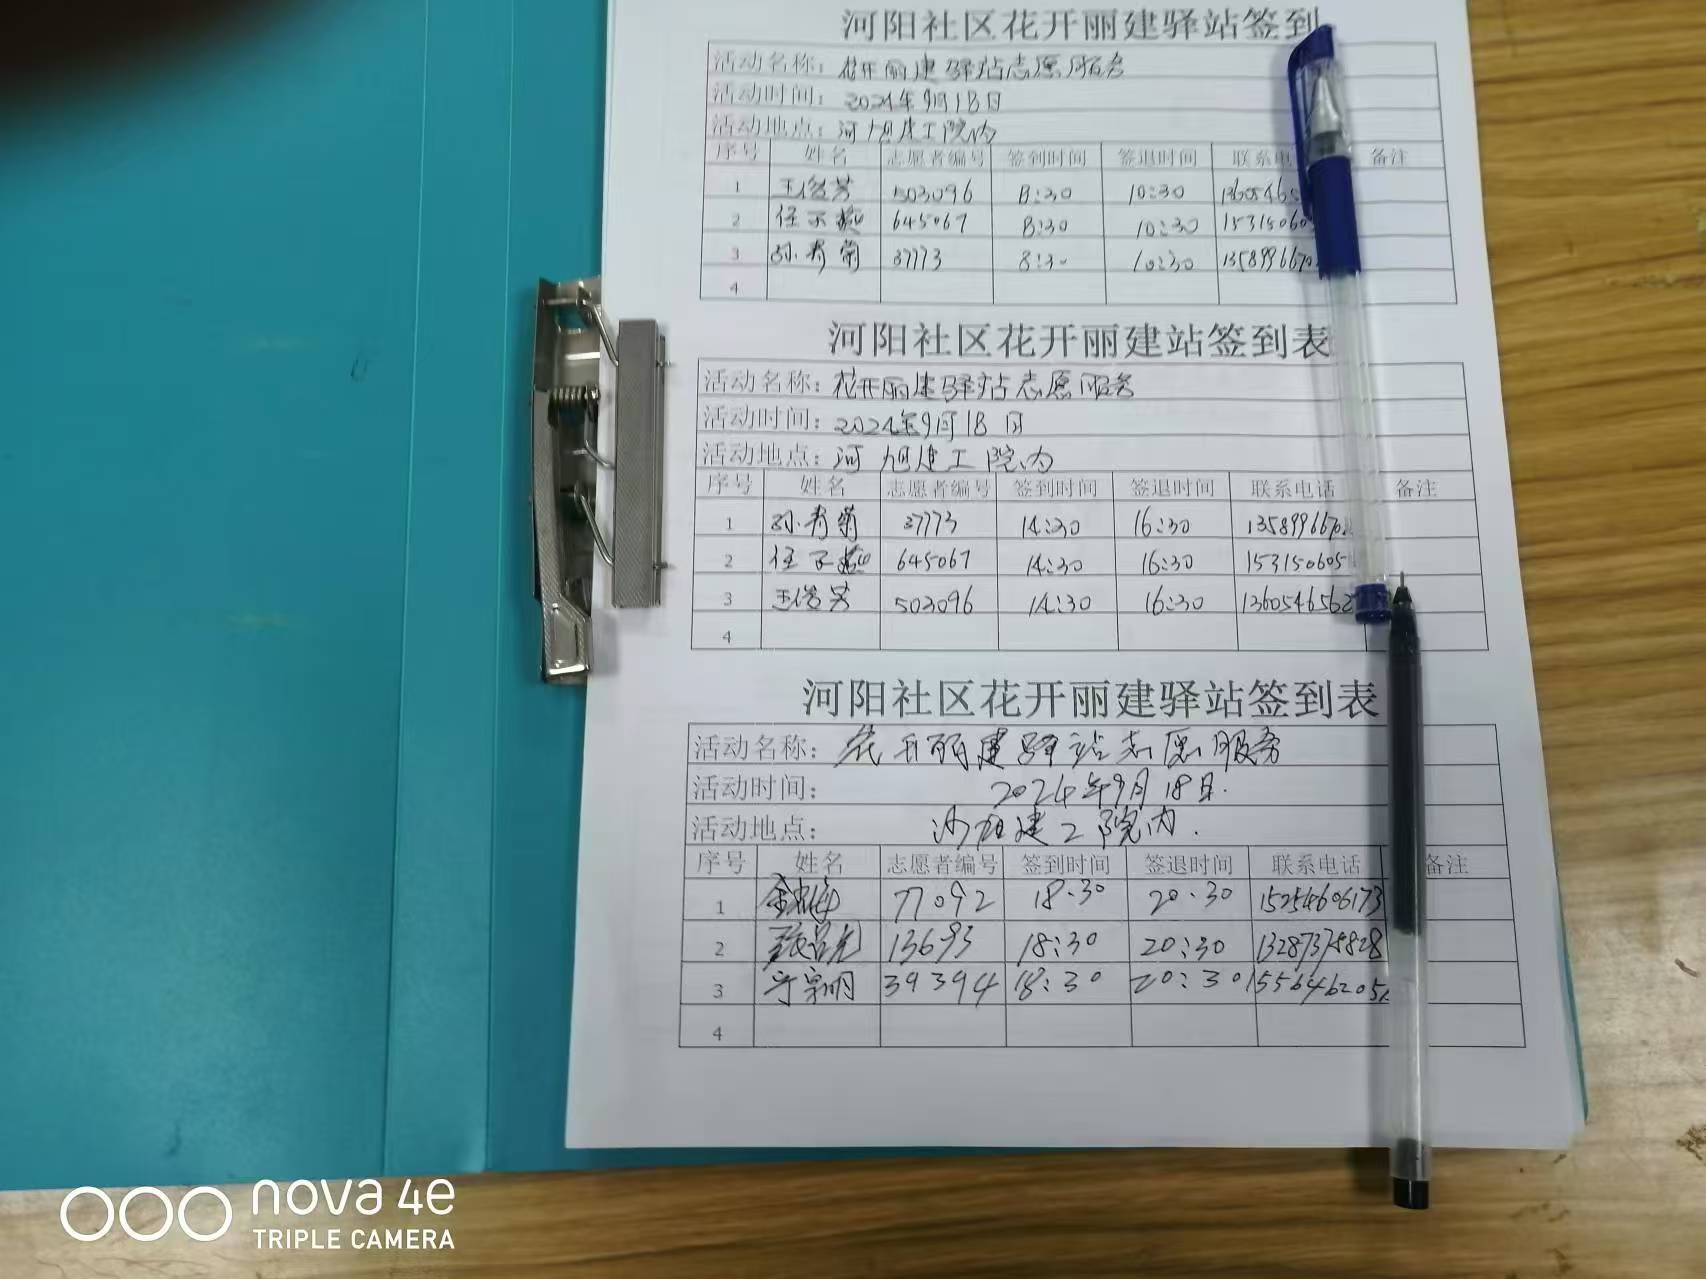 河阳社区花开丽建驿站签到
活动名称：花开丽建驿站志愿服务
活动时间：2024年9月18日
活动地点：河旭建工院内
序号 姓名 志愿者编号 签到时间 签退时间 联系电 备注
1 503096 8:30 10:30 13605465
2 645067 8:30 10:30 15315060
3 孙秀菊 37773 8:30 10:30 135899667
4
河阳社区花开丽建站签到表
活动名称：花开丽建驿站志愿服务
活动时间：2024年9月18日
活动地点：河旭建工院内
序号 姓名 志愿者编号 签到时间 签退时间 联系电话 备注
1 孙秀菊 37773 14:30 16:30 1358996670
2 645067 14:30 16:30 153150605
3 503096 14:30 16:30 1360546562
4
河阳社区花开丽建驿站签到表
活动名称：花开丽建驿站志愿服务
活动时间：2024年9月18日.
活动地点：建工院内.
序号 姓名 志愿者编号 签到时间 签退时间 联系电话 备注
1 77092 18:30 20:30 15254606173
2 13693 18:30 20:30 13287375828
3 39394 18:30 20:30 155646205
4
nova 4e
TRIPLE CAMERA